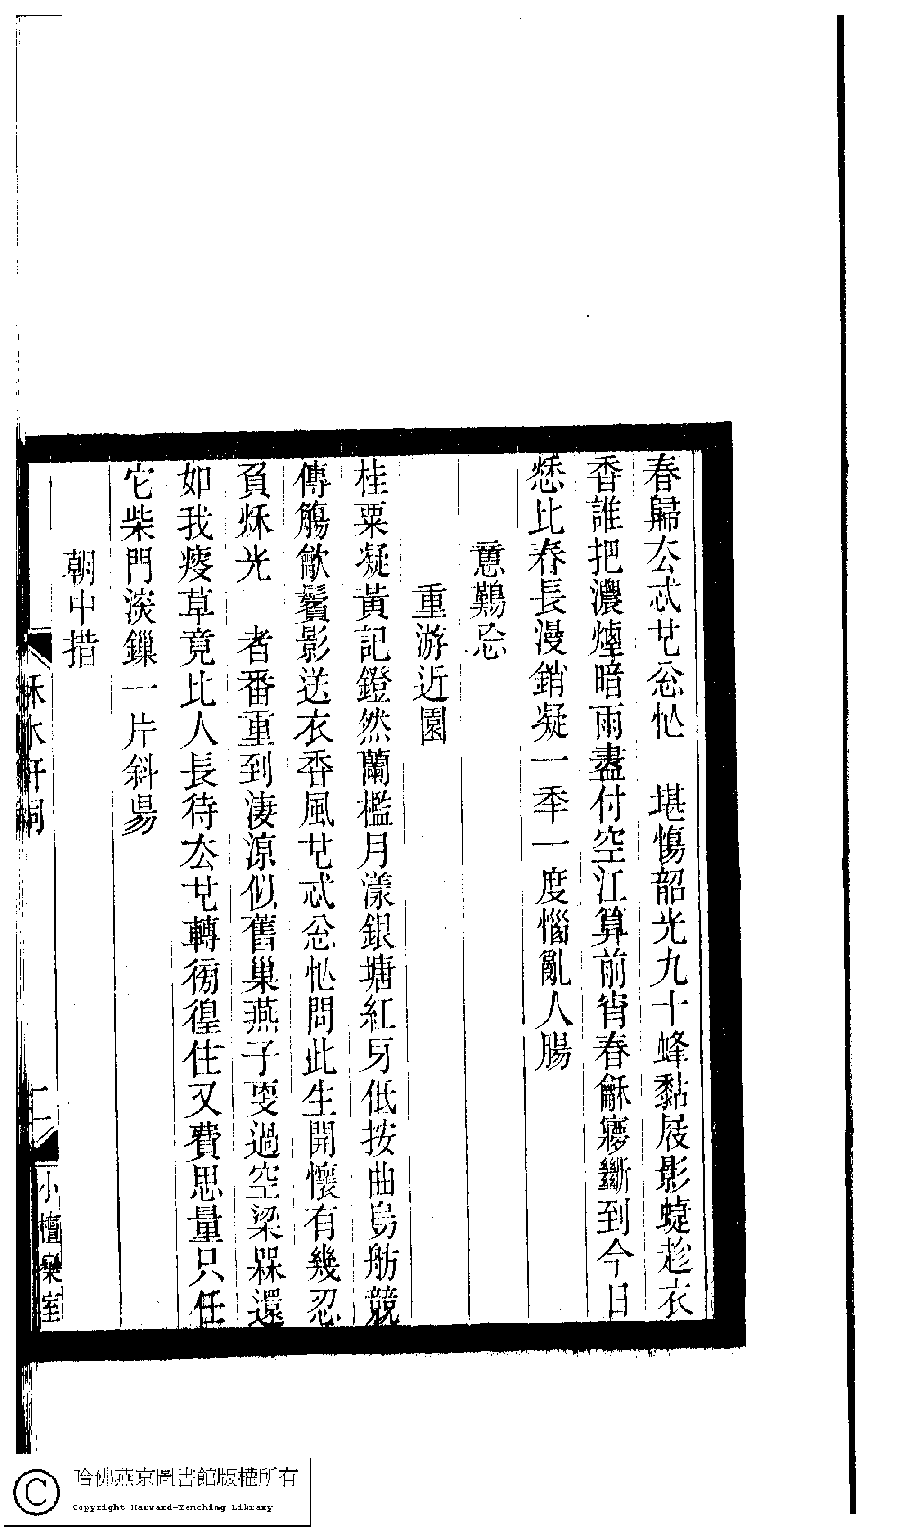 春歸厺忒𠀍忩忙　堪慯韶光九十蜂黏屐影蜨趁衣
香誰把濃煙暗雨盡付空江算前宵春龢㝱斷到今日
愁比春長漫銷凝一秊一度惱亂人腸
意難忘
重游近園
桂粟凝黃記鐙然蘭檻月漾銀塘紅牙低按曲鳥舫競
傳觴歈鬢影送衣香風𠀍忒忩忙問此生開懷有幾忍
負秌光　者番重到淒涼似舊巢燕子叓過空梁槑還
如我瘦草竟比人長待厺𠀍轉徬徨住又費思量只任
它柴門淡鏁一片斜昜
朝中措
秌水軒詞
二
小檀欒室
哈佛燕京圖書館版權所有
Copyright Harvard-Yenching Library